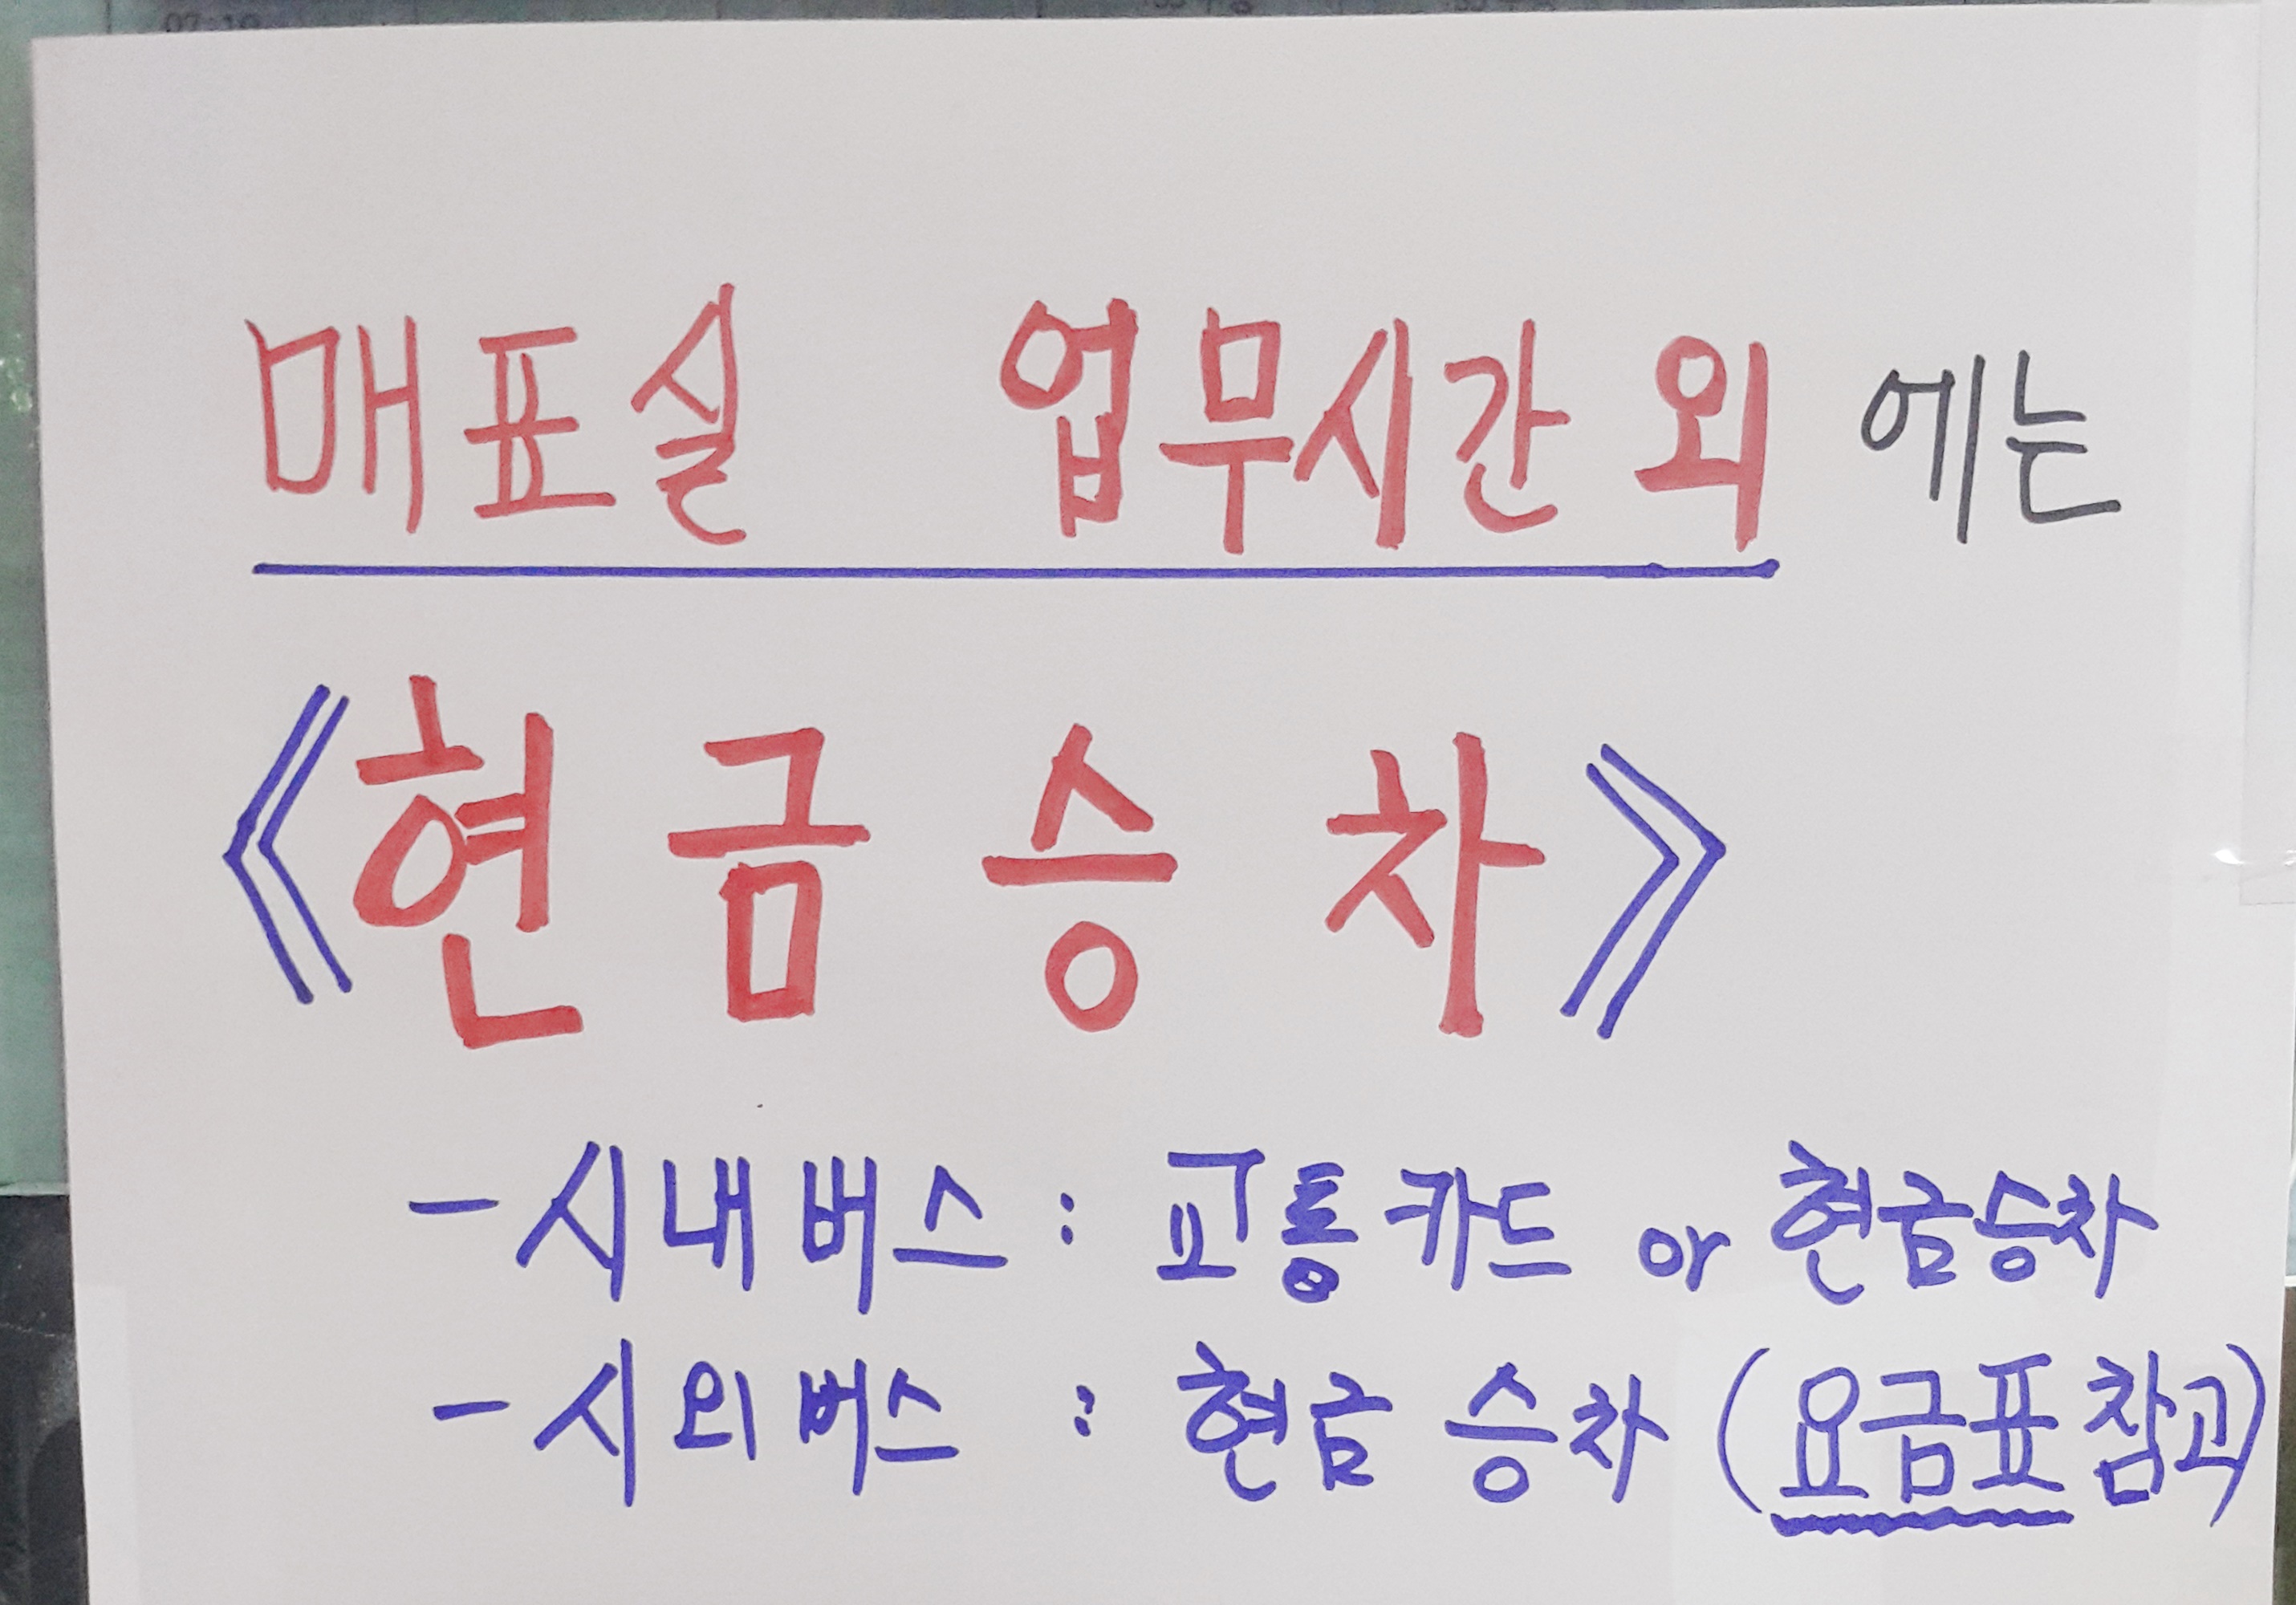 07:10
매표실 업무시간 외 에는
《현금승차》
- 시내버스 : 교통카드 or 현금승차
- 시외버스 : 현금 승차 (요금표 참고)